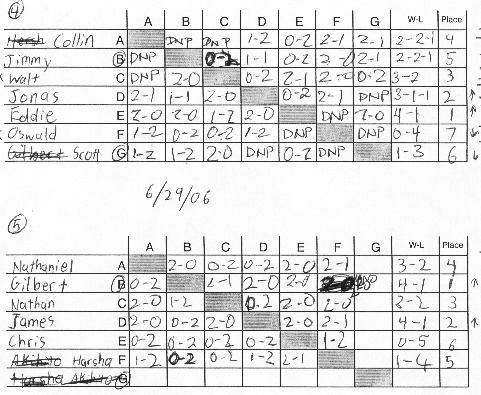 4
A B C D E F G W-L Place
Collin A DNP DNP 1-2 0-2 2-1 2-1 2-2-1 4
Jimmy B DNP 0-2 1-1 0-2 2-0 2-1 2-2-1 5
Walt C DNP 2-0 0-2 2-1 2-0 0-2 3-2 3
Jonas D 2-1 1-1 2-0 0-2 2-1 DNP 3-1-1 2 ↑
Eddie E 2-0 2-0 1-2 2-0 DNP 2-0 4-1 1 ↑
Oswald F 1-2 0-2 0-2 1-2 DNP DNP 0-4 7 ↓
Gilbert Scott G 1-2 1-2 2-0 DNP 0-2 DNP 1-3 6 ↓
6/29/06
5
A B C D E F G W-L Place
Nathaniel A 2-0 0-2 0-2 2-0 2-1 3-2 4
Gilbert B 0-2 2-1 2-0 2-0 2-0 4-1 1 ↑
Nathan C 2-0 1-2 0-2 2-0 2-0 3
James D 2-0 0-2 2-0 2-0 2-1 4-1 2 ↑
Chris E 0-2 0-2 0-2 0-2 1-2 0-5 6
Akihito Harsha F 1-2 0-2 0-2 1-2 2-1 1-4 5
Harsha Akihito G